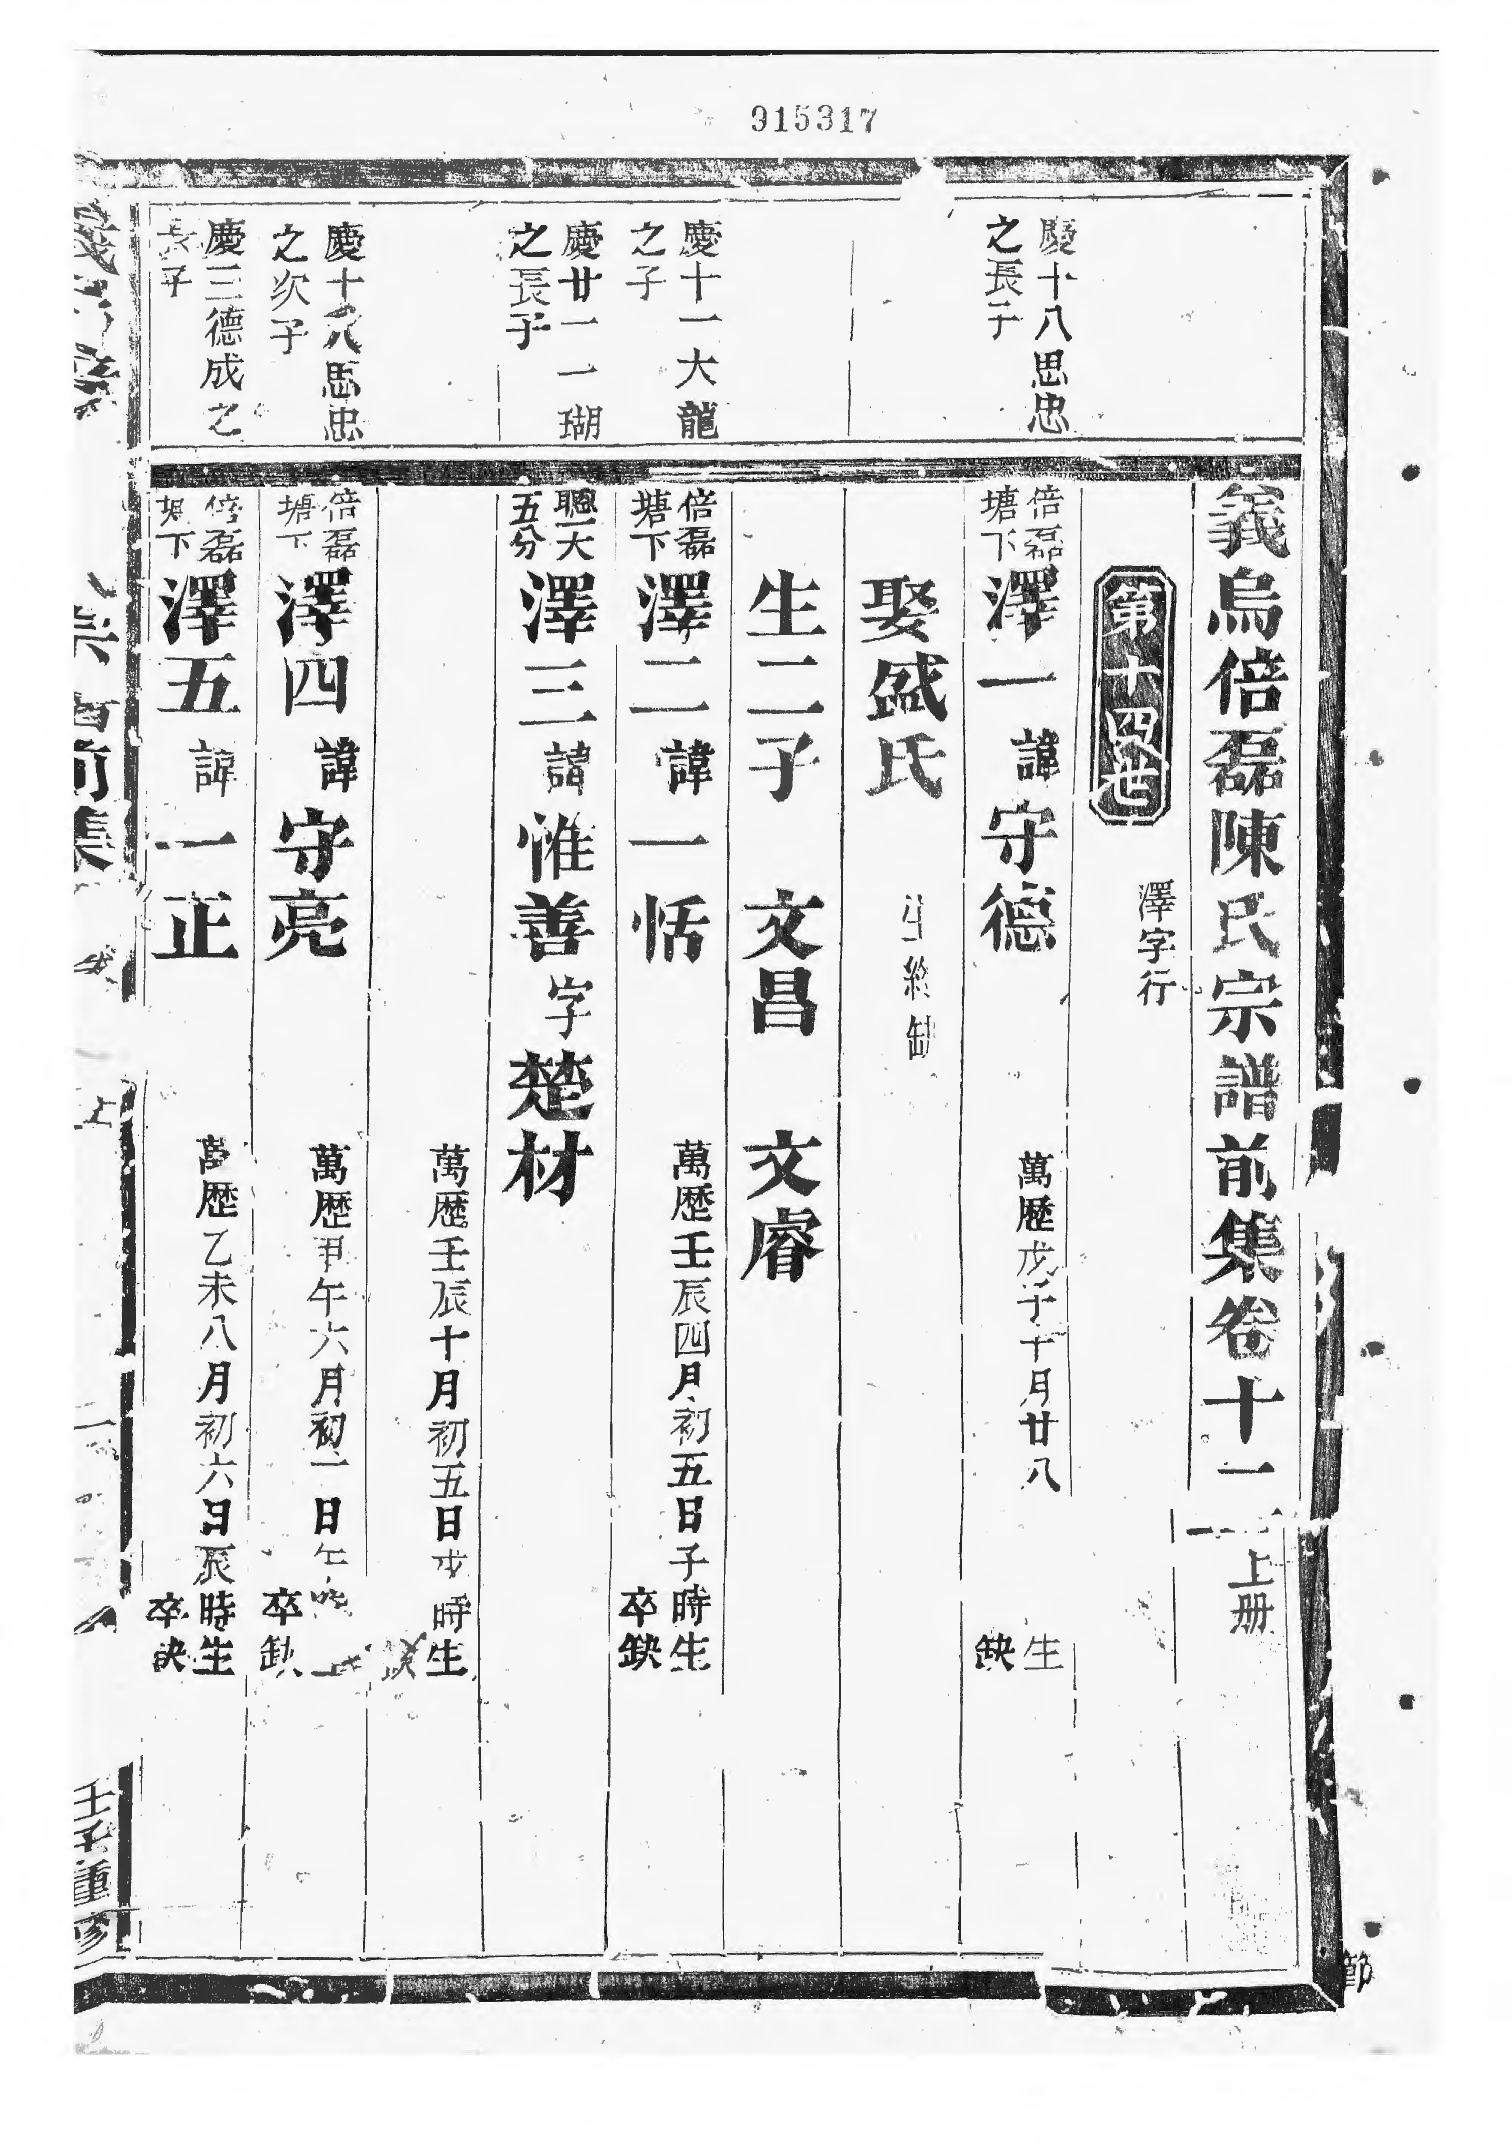 915317
義烏倍磊陳氏宗譜前集卷十二上册
第十四世
澤字行
慶十八思忠
之長子
倍磊
塘下
澤一諱守德
萬歷戊子十月廿八
生
缺
娶盛氏
生終缺
生二子 文昌 文睿
慶十一大龍
之子
倍磊
塘下
澤二諱一恬
萬歷壬辰四月初五日子時生
卒缺
慶廿一一瑚
之長子
聰一大
五分
澤三諱惟善字楚材
萬歷壬辰十月初五日戌時生
慶十八思忠
之次子
倍磊
塘下
澤四諱守亮
萬歷甲午六月初一日午時生
卒缺
慶三德成之
長子
倍磊
塘下
澤五諱一正
萬歷乙未八月初六日辰時生
卒缺
宗譜前集
上
二
壬子重修
節